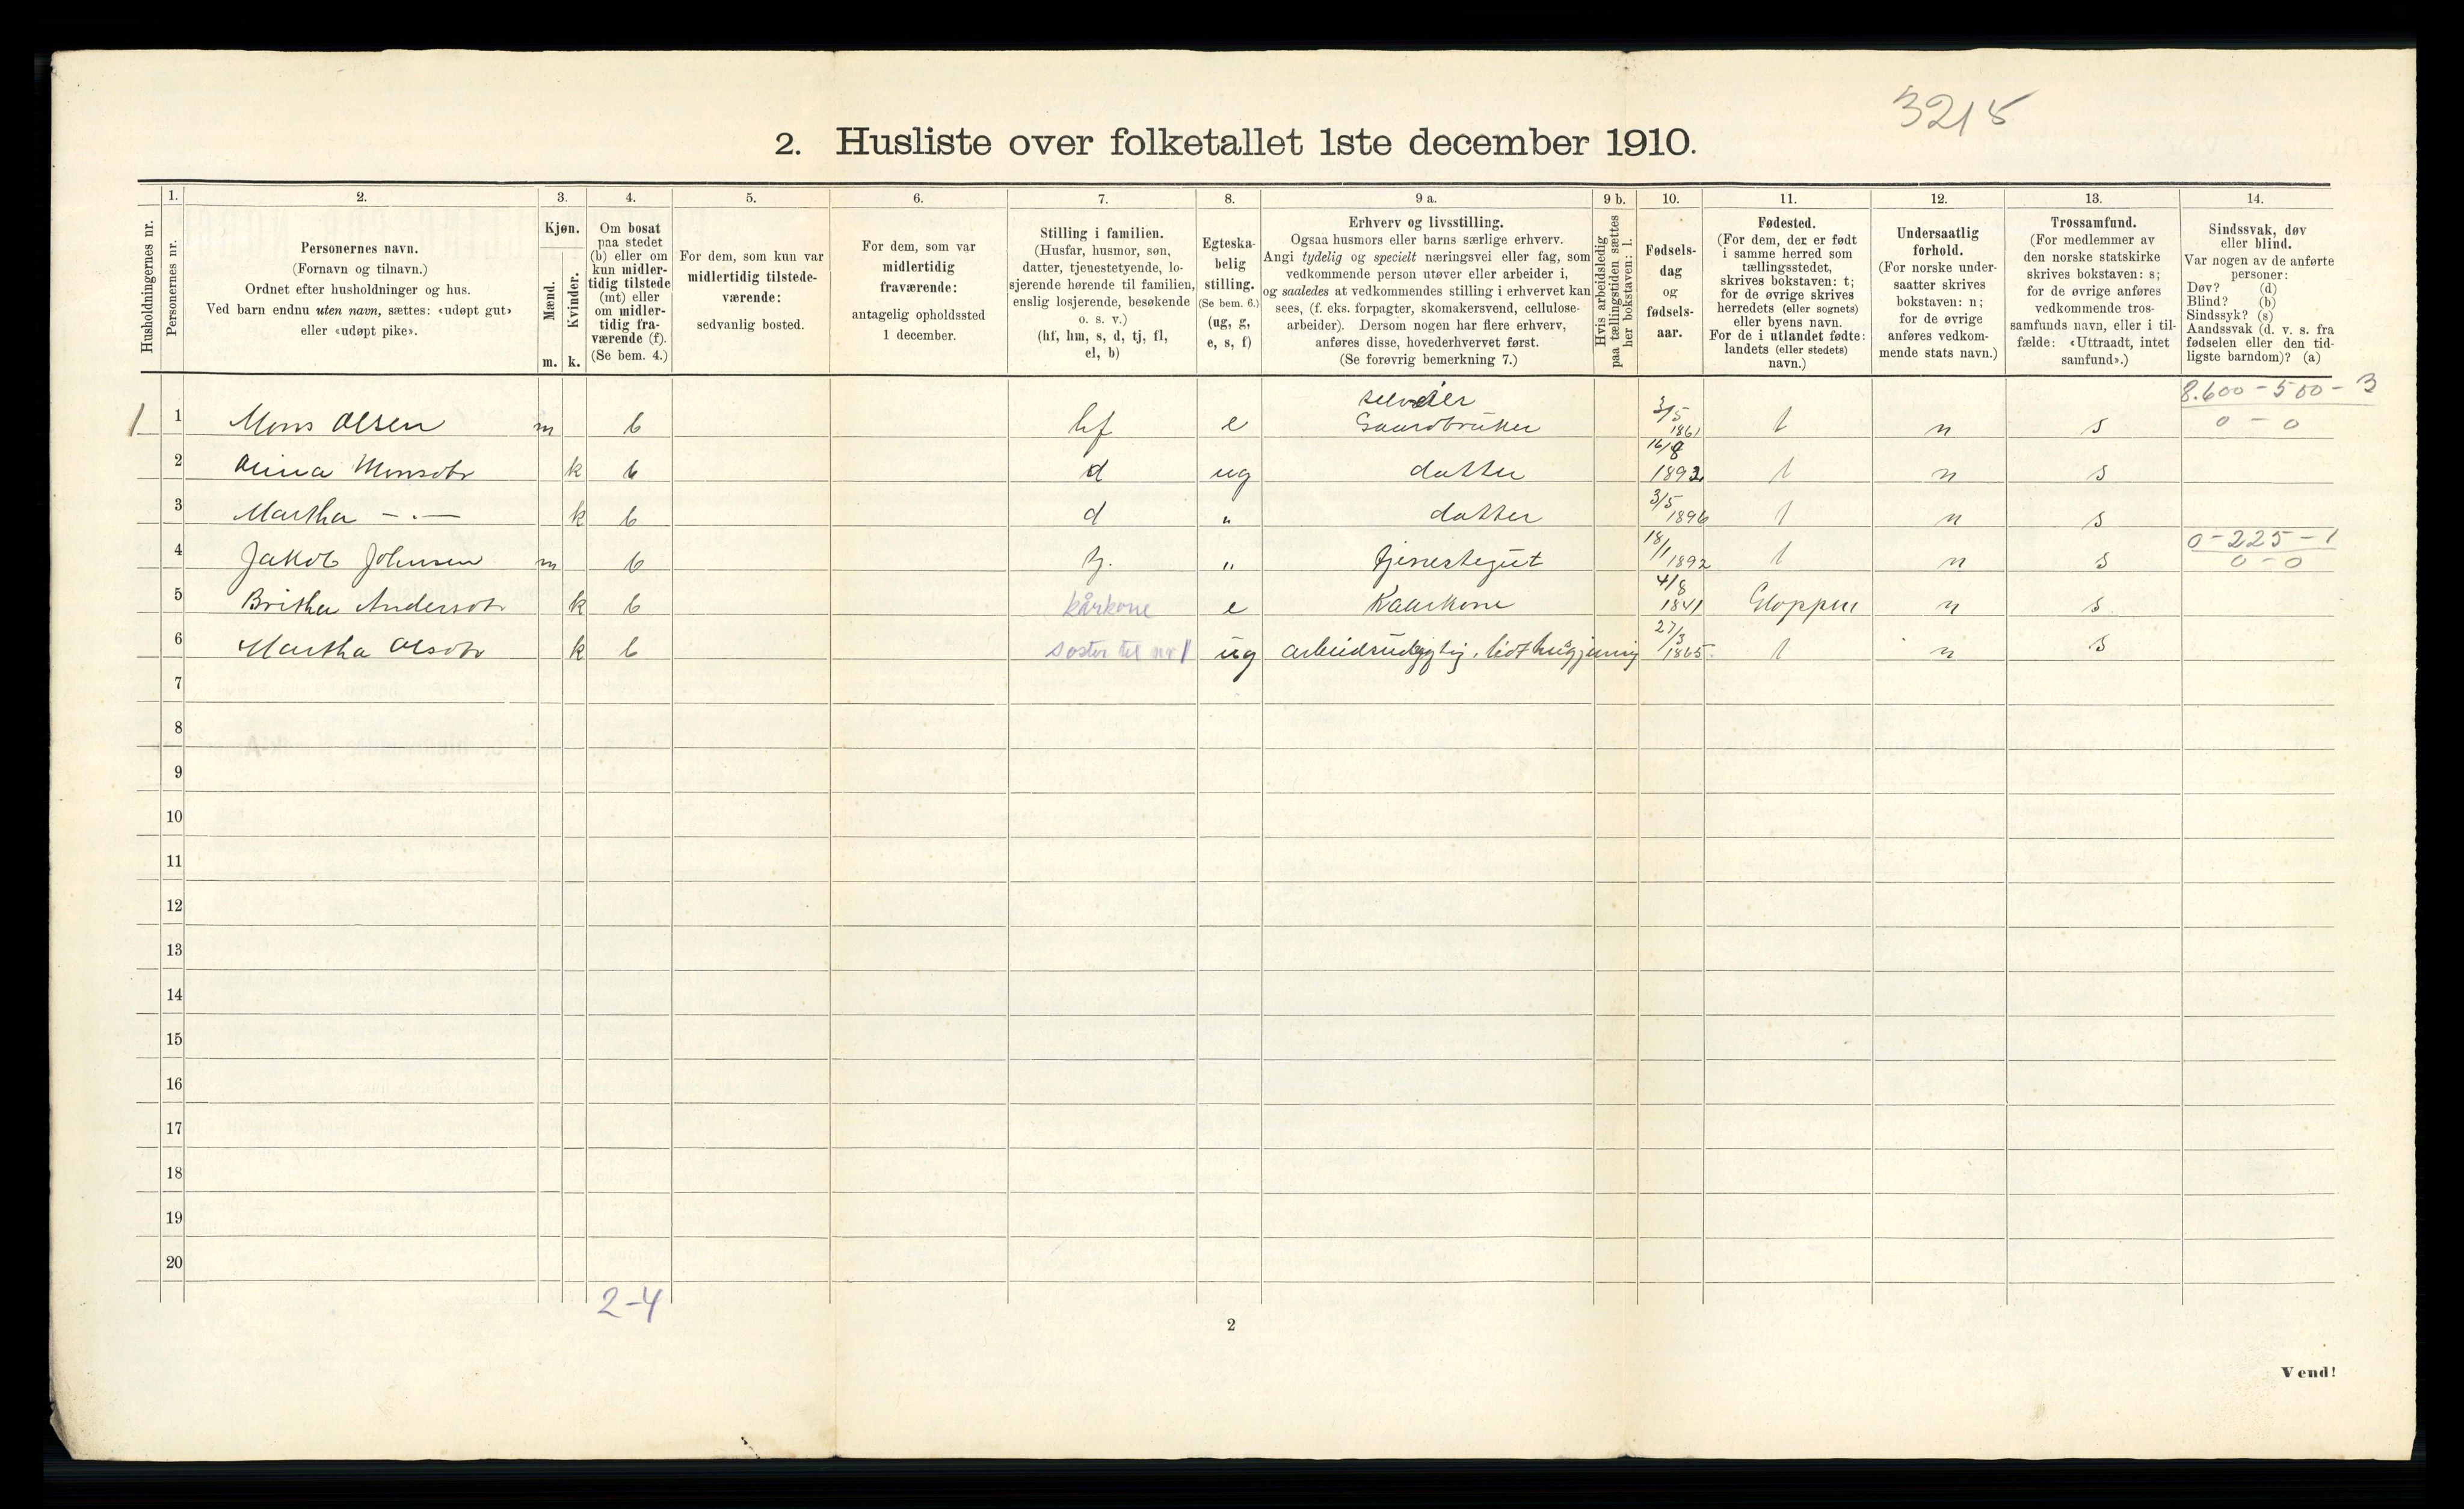 3215
2. Husliste over folketallet 1ste december 1910.
Husholdningernes nr.
1.
Personernes nr.
2.
Personernes navn.
(Fornavn og tilnavn.)
Ordnet efter husholdninger og hus.
Ved barn endnu uten navn, sættes: «udøpt gut»
eller «udøpt pike».
3.
Kjøn.
Mænd.
m.
Kvinder.
k.
4.
Om bosat
paa stedet
(b) eller om
kun midler-
tidig tilstede
(mt) eller
om midler-
tidig fra-
værende (f).
(Se bem. 4.)
5.
For dem, som kun var
midlertidig tilstede-
værende:
sedvanlig bosted.
6.
For dem, som var
midlertidig
fraværende:
antagelig opholdssted
1 december.
7.
Stilling i familien.
(Husfar, husmor, søn,
datter, tjenestetyende, lo-
sjerende hørende til familien,
enslig losjerende, besøkende
o. s. v.)
(hf, hm, s, d, tj, fl,
el, b)
8.
Egteska-
belig
stilling.
(Se bem. 6.)
(ug, g,
e, s, f)
9 a.
Erhverv og livsstilling.
Ogsaa husmors eller barns særlige erhverv.
Angi tydelig og specielt næringsvei eller fag, som
vedkommende person utøver eller arbeider i,
og saaledes at vedkommendes stilling i erhvervet kan
sees, (f. eks. forpagter, skomakersvend, cellulose-
arbeider). Dersom nogen har flere erhverv,
anføres disse, hovederhvervet først.
(Se forøvrig bemerkning 7.)
9 b.
Hvis arbeidsledig
paa tællingstiden sættes
her bokstaven: l.
10.
Fødsels-
dag
og
fødsels-
aar.
11.
Fødested.
(For dem, der er født
i samme herred som
tællingsstedet,
skrives bokstaven: t;
for de øvrige skrives
herredets (eller sognets)
eller byens navn.
For de i utlandet fødte:
landets (eller stedets)
navn.)
12.
Undersaatlig
forhold.
(For norske under-
saatter skrives
bokstaven: n;
for de øvrige
anføres vedkom-
mende stats navn.)
13.
Trossamfund.
(For medlemmer av
den norske statskirke
skrives bokstaven: s;
for de øvrige anføres
vedkommende tros-
samfunds navn, eller i til-
fælde: «Uttraadt, intet
samfund».)
14.
Sindssvak, døv
eller blind.
Var nogen av de anførte
personer:
Døv? (d)
Blind? (b)
Sindssyk? (s)
Aandssvak (d. v. s. fra
fødselen eller den tid-
ligste barndom)? (a)
8.600 - 500 - 3
selveier
1 1 Mons Olsen m b hf e Gaardbruker 3/5 1861 t n s 0 - 0
2 Anna Monsdtr k b d ug datter 16/8 1892 t n s
3 Martha - . - k b d " datter 3/5 1896 t n s
0 - 225 - 1
4 Jakob Johnsen m b tj. " tjenestegut 18/1 1892 t n s 0 - 0
5 Britha Andersdtr k b kårkone e Kaarkone 4/8 1841 Gloppen n s
6 Martha Olsdtr k b søster til nr 1 ug arbeidsudygtig. lidt husgjerning 27/3 1865 t n s
7
8
9
10
11
12
13
14
15
16
17
18
19
20
2-4
2
Vend!